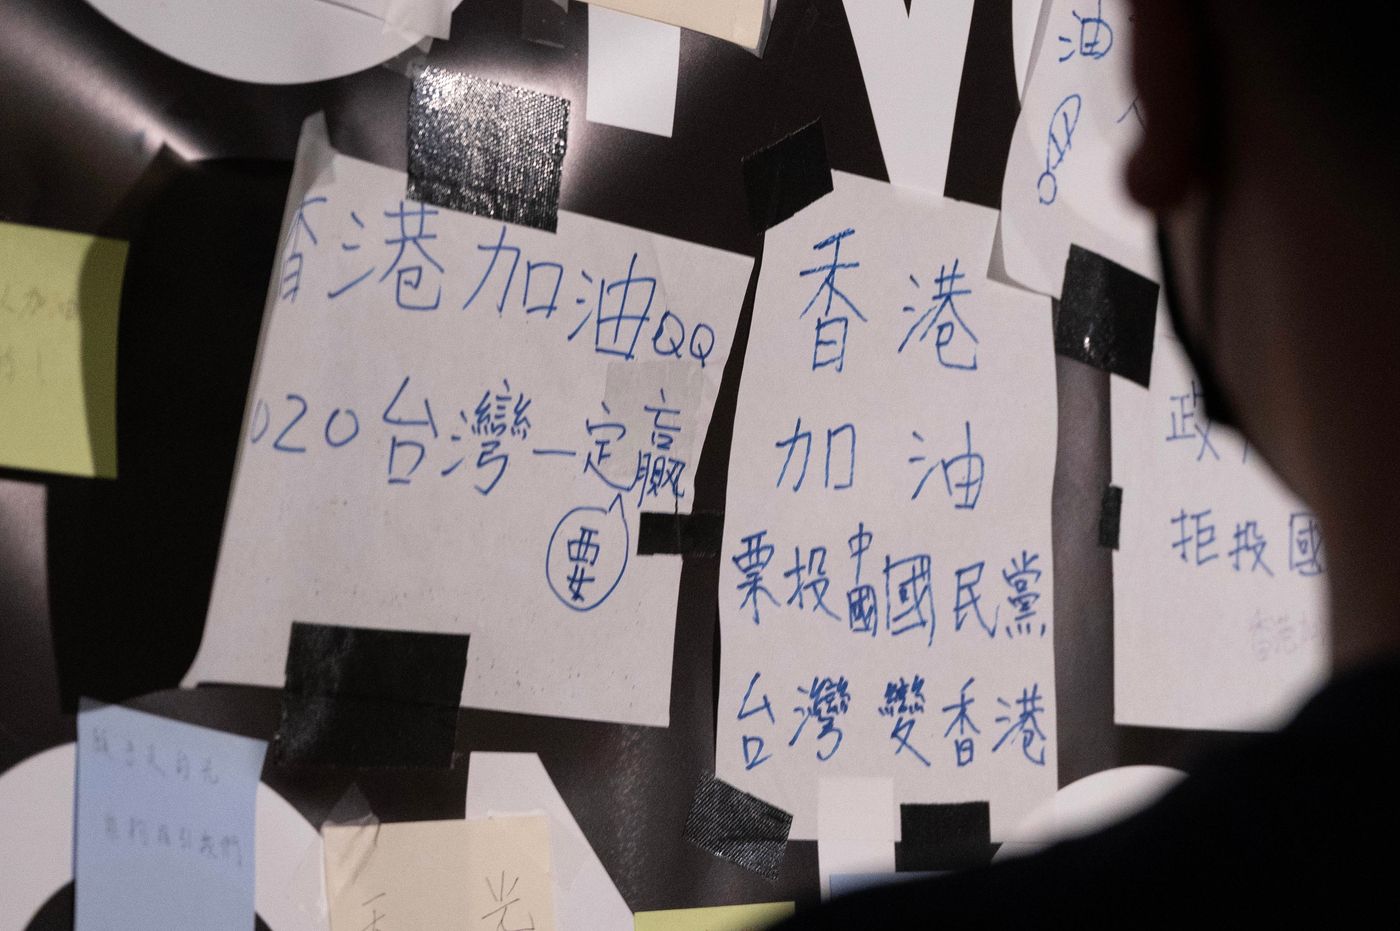 香港加油QQ
020台灣一定贏
要
香港
加油
票投中國國民黨
台灣變香港
油
政
拒投國
加油
光